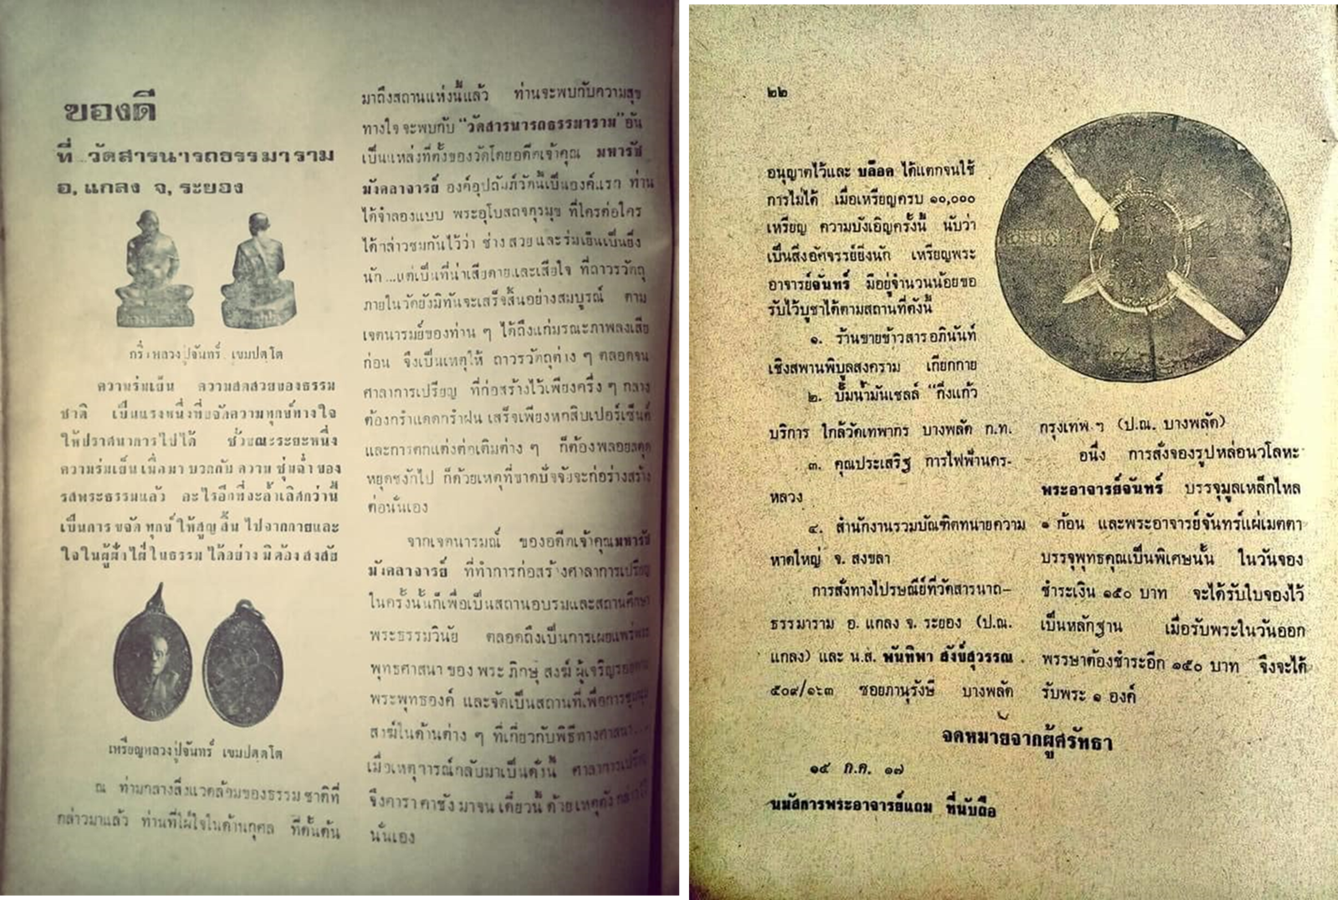 ของดี
ที่ วัดสารนารถธรรมาราม
อ, แกลง จ, ระยอง
กริ่งหลวงปู่จันทร์ เขมปตฺโต
ความร่มเย็น ความสดสวยของธรรม
ชาติ เป็นแรงหนึ่งที่ขจัดความทุกข์ทางใจ
ให้ปราศนาการไปได้ ชั่วขณะระยะหนึ่ง
ความร่มเย็น เมื่อมา บวกกับ ความ ชุ่มฉ่ำ ของ
รสพระธรรมแล้ว อะไรอีกที่จะล้ำเลิศกว่านี้
เป็นการ ขจัด ทุกข์ ให้สูญ สิ้น ไปจากกายและ
ใจในผู้ฝ่าใส่ ในธรรม ได้อย่าง มิต้อง สงสัย
เหรียญหลวงปู่จันทร์ เขมปตฺโต
ณ ท่ามกลางสิ่งแวดล้อมของธรรม ชาติที่
กล่าวมาแล้ว ท่านที่ใฝ่ใจในด้านกุศล ที่ดั้นด้น
มาถึงสถานแห่งนี้แล้ว ท่านจะพบกับความสุข
ทางใจ จะพบกับ "วัดสารนารถธรรมาราม" อัน
เป็นแหล่งที่ตั้งของวัดโดยอดีตเจ้าคุณ มหารัช
มังคลาจารย์ องค์อุปถัมภ์วัดนี้เป็นองค์แรก ท่าน
ได้จำลองแบบ พระอุโบสถจตุรมุข ที่ใครต่อใคร
ได้กล่าวชมกันไว้ว่า ช่าง สวย และร่มเย็นเป็นยิ่ง
นัก ...แต่เป็นที่น่าเสียดายและเสียใจ ที่ถาวรวัตถุ
ภายในวัดยังมิทันจะเสร็จสิ้นอย่างสมบูรณ์ ตาม
เจตนารมย์ของท่าน ๆ ได้ถึงแก่มรณะภาพลงเสีย
ก่อน จึงเป็นเหตุให้ ถาวรวัตถุต่าง ๆ ตลอดจน
ศาลาการเปรียญ ที่ก่อสร้างไว้เพียงครึ่ง ๆ กลาง
ต้องกรำแดดกรำฝน เสร็จเพียงหกสิบเปอร์เซ็นต์
และการตกแต่งต่อเติมต่าง ๆ ก็ต้องพลอย
หยุดชงักไป ก็ด้วยเหตุที่ขาดปัจจัยจะก่อร่างสร้าง
ต่อนั่นเอง
จากเจตนารมณ์ ของอดีตเจ้าคุณมหารัช
มังคลาจารย์ ที่ทำการก่อสร้างศาลาการเปรียญ
ในครั้งนั้นก็เพื่อเป็นสถานอบรมและสถานศึกษา
พระธรรมวินัย ตลอดถึงเป็นการเผยแพร่พระ
พุทธศาสนา ของ พระ ภิกษุ สงฆ์ ผู้เจริญ
พระพุทธองค์ และจัดเป็นสถานที่เพื่อการ
สาฆ์ในด้านต่าง ๆ ที่เกี่ยวกับพิธีทางศาสนา
เมื่อเหตุการณ์กลับมาเป็นดังนี้ ศาลาการเปรียญ
จึงคารา คาซัง มาจน เดี๋ยวนี้ ด้วย เหตุดัง
นั่นเอง
๒๒
อนุญาตไว้และ บล๊อค ได้แตกจนใช้
การไม่ได้ เมื่อเหรียญครบ ๑๐,๐๐๐
เหรียญ ความบังเอิญครั้งนี้ นับว่า
เป็นสิ่งอัศจรรย์ยิ่งนัก เหรียญพระ
อาจารย์จันทร์ มีอยู่จำนวนน้อยขอ
รับไว้บูชาได้ตามสถานที่ดังนี้
๑. ร้านขายข้าวสารอภินันท์
เชิงสพานพิบูลสงคราม เกียกกาย
๒. ปั๊มน้ำมันเชลล์ "กิ่งแก้ว
บริการ ใกล้วัดเทพากร บางพลัด ก.ท.
๓. คุณประเสริฐ การไฟฟ้านคร-
หลวง
๔. สำนักงานรวมบัณฑิตทนายความ
หาดใหญ่ จ. สงขลา
การสั่งทางไปรษณีย์ที่วัดสารนาถ-
ธรรมาราม อ. แกลง จ. ระยอง (ป.ณ.
แกลง) และ น.ส. พันทิพา สังข์สุวรรณ .
๕๐๙/๑๖๓ ซอยภาณุรังษี บางพลัด
กรุงเทพ ฯ (ป.ณ. บางพลัด)
อนึ่ง การสั่งจองรูปหล่อนวโลหะ
พระอาจารย์จันทร์ บรรจุมูลเหล็กไหล
๑ ก้อน และพระอาจารย์จันทร์แผ่เมตตา
บรรจุพุทธคุณเป็นพิเศษนั้น ในวันจอง
ชำระเงิน ๑๕๐ บาท จะได้รับใบจองไว้
เป็นหลักฐาน เมื่อรับพระในวันออก
พรรษาต้องชำระอีก ๑๕๐ บาท จึงจะได้
รับพระ ๑ องค์
จดหมายจากผู้ศรัทธา
๑๕ ก.ค. ๑๗
นมัสการพระอาจารย์แถม ที่นับถือ